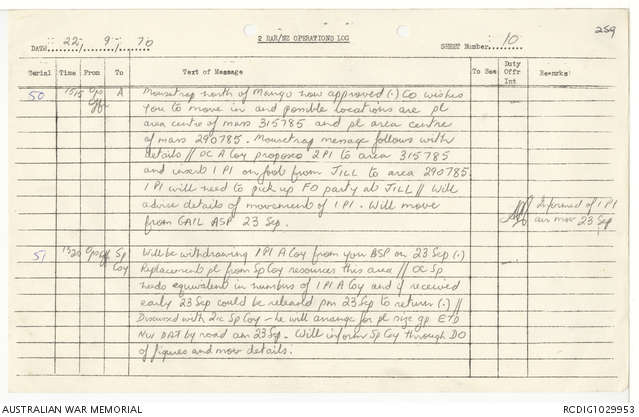 259
2 RAR/NZ OPERATIONS LOG
DATE 22/9/70
SHEET Number 10
Serial Time From To Text of Message To See Duty Offr Int Remarks
50 1515 Ops Offr A Mousetrap north of Mango now approved (.) Co wishes
you to move in and possible locations are pl
area centre of mass 315785 and pl area centre
of mass 290785. Mousetrap message follows with
details // OC A Coy proposes 2 Pl to area 315785
and insert 1 Pl on foot from JILL to area 290785.
1 Pl will need to pick up FO party at JILL // Will
advise details of movement of 1 Pl. Will move
from GAIL ASP 23 Sep.
Informed of 1 Pl
am mov 23 Sep
51 1520 Ops Offr Sp Coy Will be withdrawing 1 Pl A Coy from your BSP on 23 Sep (.)
Replacement pl from Sp Coy resources this area // OC Sp
needs equivalent in numbers of 1 Pl A Coy and if received
early 23 Sep could be released pm 23 Sep to return (.) //
Discussed with 2ic Sp Coy - he will arrange for pl size gp ETD
NUI DAT by road am 23 Sep. Will inform Sp Coy through DO
of figures and mov details.
AUSTRALIAN WAR MEMORIAL
RCDIG1029953